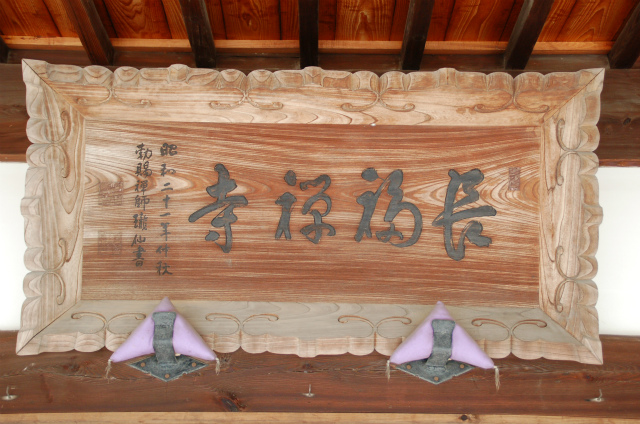 長福禅寺
昭和二十一年仲秋
勅賜禅師瓏仙書